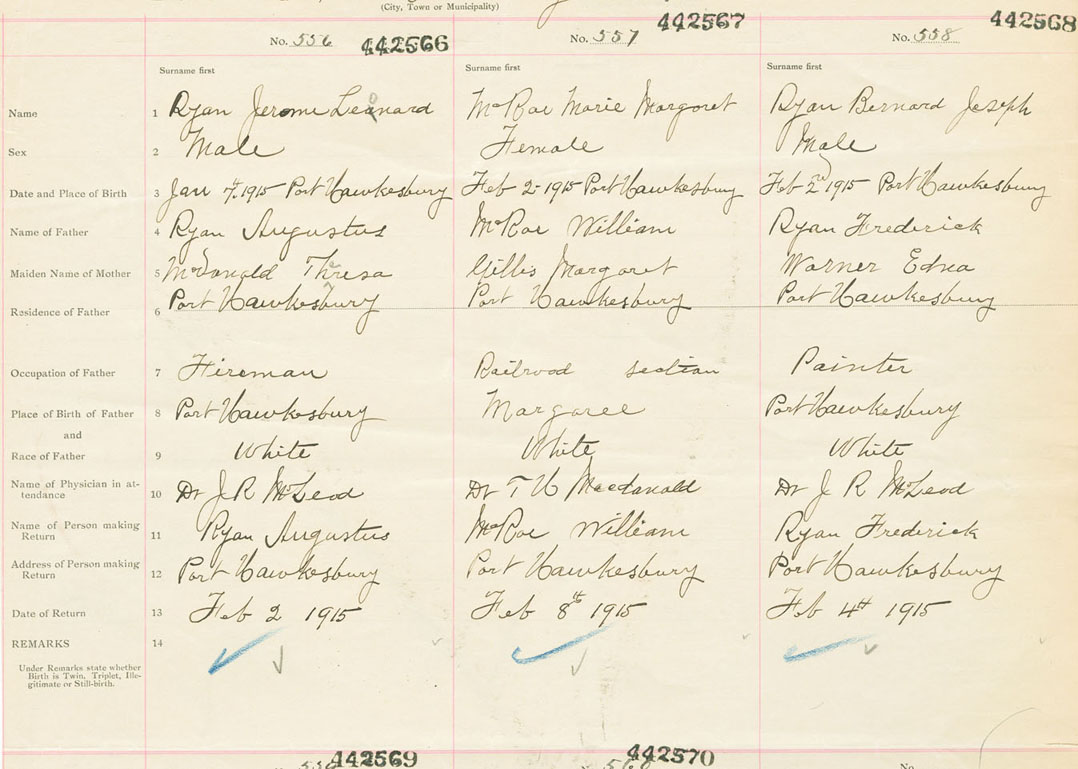 (City, Town or Municipality)
No. 556 442566 No. 557 442567 No. 558 442568
Surname first Surname first Surname first
Name 1 Ryan Jerome Leonard McRae Marie Margaret Ryan Bernard Joseph
Sex 2 Male Female Male
Date and Place of Birth 3 Jan 7th 1915 Port Hawkesbury Feb 2nd 1915 Port Hawkesbury Feb 2nd 1915 Port Hawkesbury
Name of Father 4 Ryan Augustus McRae William Ryan Frederick
Maiden Name of Mother 5 McDonald Thresa Gillis Margaret Warner Edna
Residence of Father 6 Port Hawkesbury Port Hawkesbury Port Hawkesbury
Occupation of Father 7 Fireman Railroad section Painter
Place of Birth of Father 8 Port Hawkesbury Margaree Port Hawkesbury
and
Race of Father 9 White White White
Name of Physician in at-
tendance 10 Dr J R McLeod Dr T U Macdonald Dr J R McLeod
Name of Person making
Return 11 Ryan Augustus McRae William Ryan Frederick
Address of Person making
Return 12 Port Hawkesbury Port Hawkesbury Port Hawkesbury
Date of Return 13 Feb 2 1915 Feb 8th 1915 Feb 4th 1915
REMARKS 14
Under Remarks state whether
Birth is Twin, Triplet, Ille-
gitimate or Still-birth.
442569 442570
No.